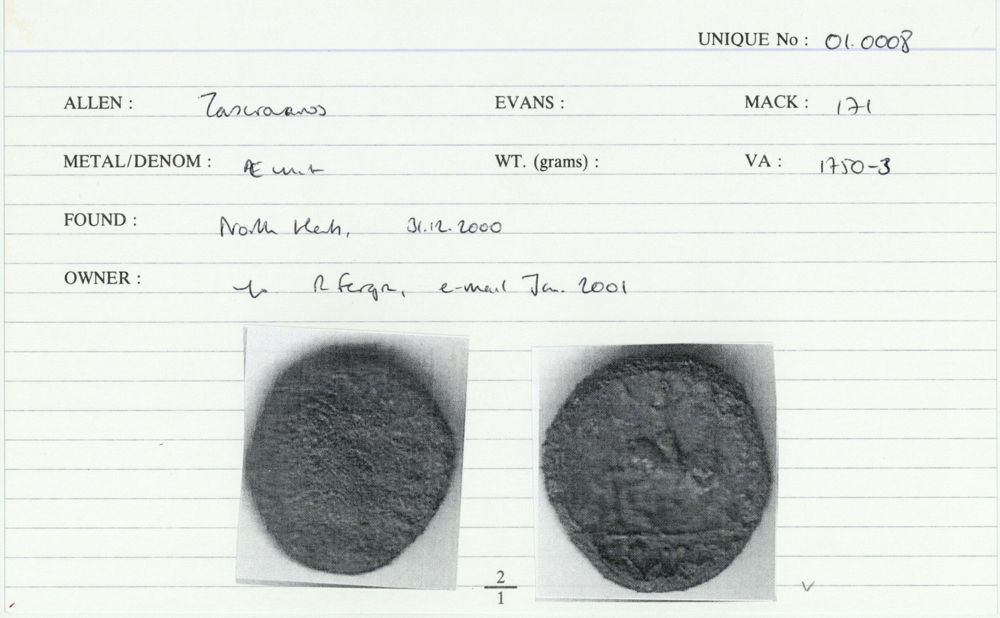 UNIQUE No : 01.0008
ALLEN : Tasciovanos EVANS : MACK : 171
METAL/DENOM : Æ unit WT. (grams) : VA : 1750-3
FOUND : North Herts, 31.12.2000
OWNER : R Ferqn, e-mail Jan. 2001
2
1